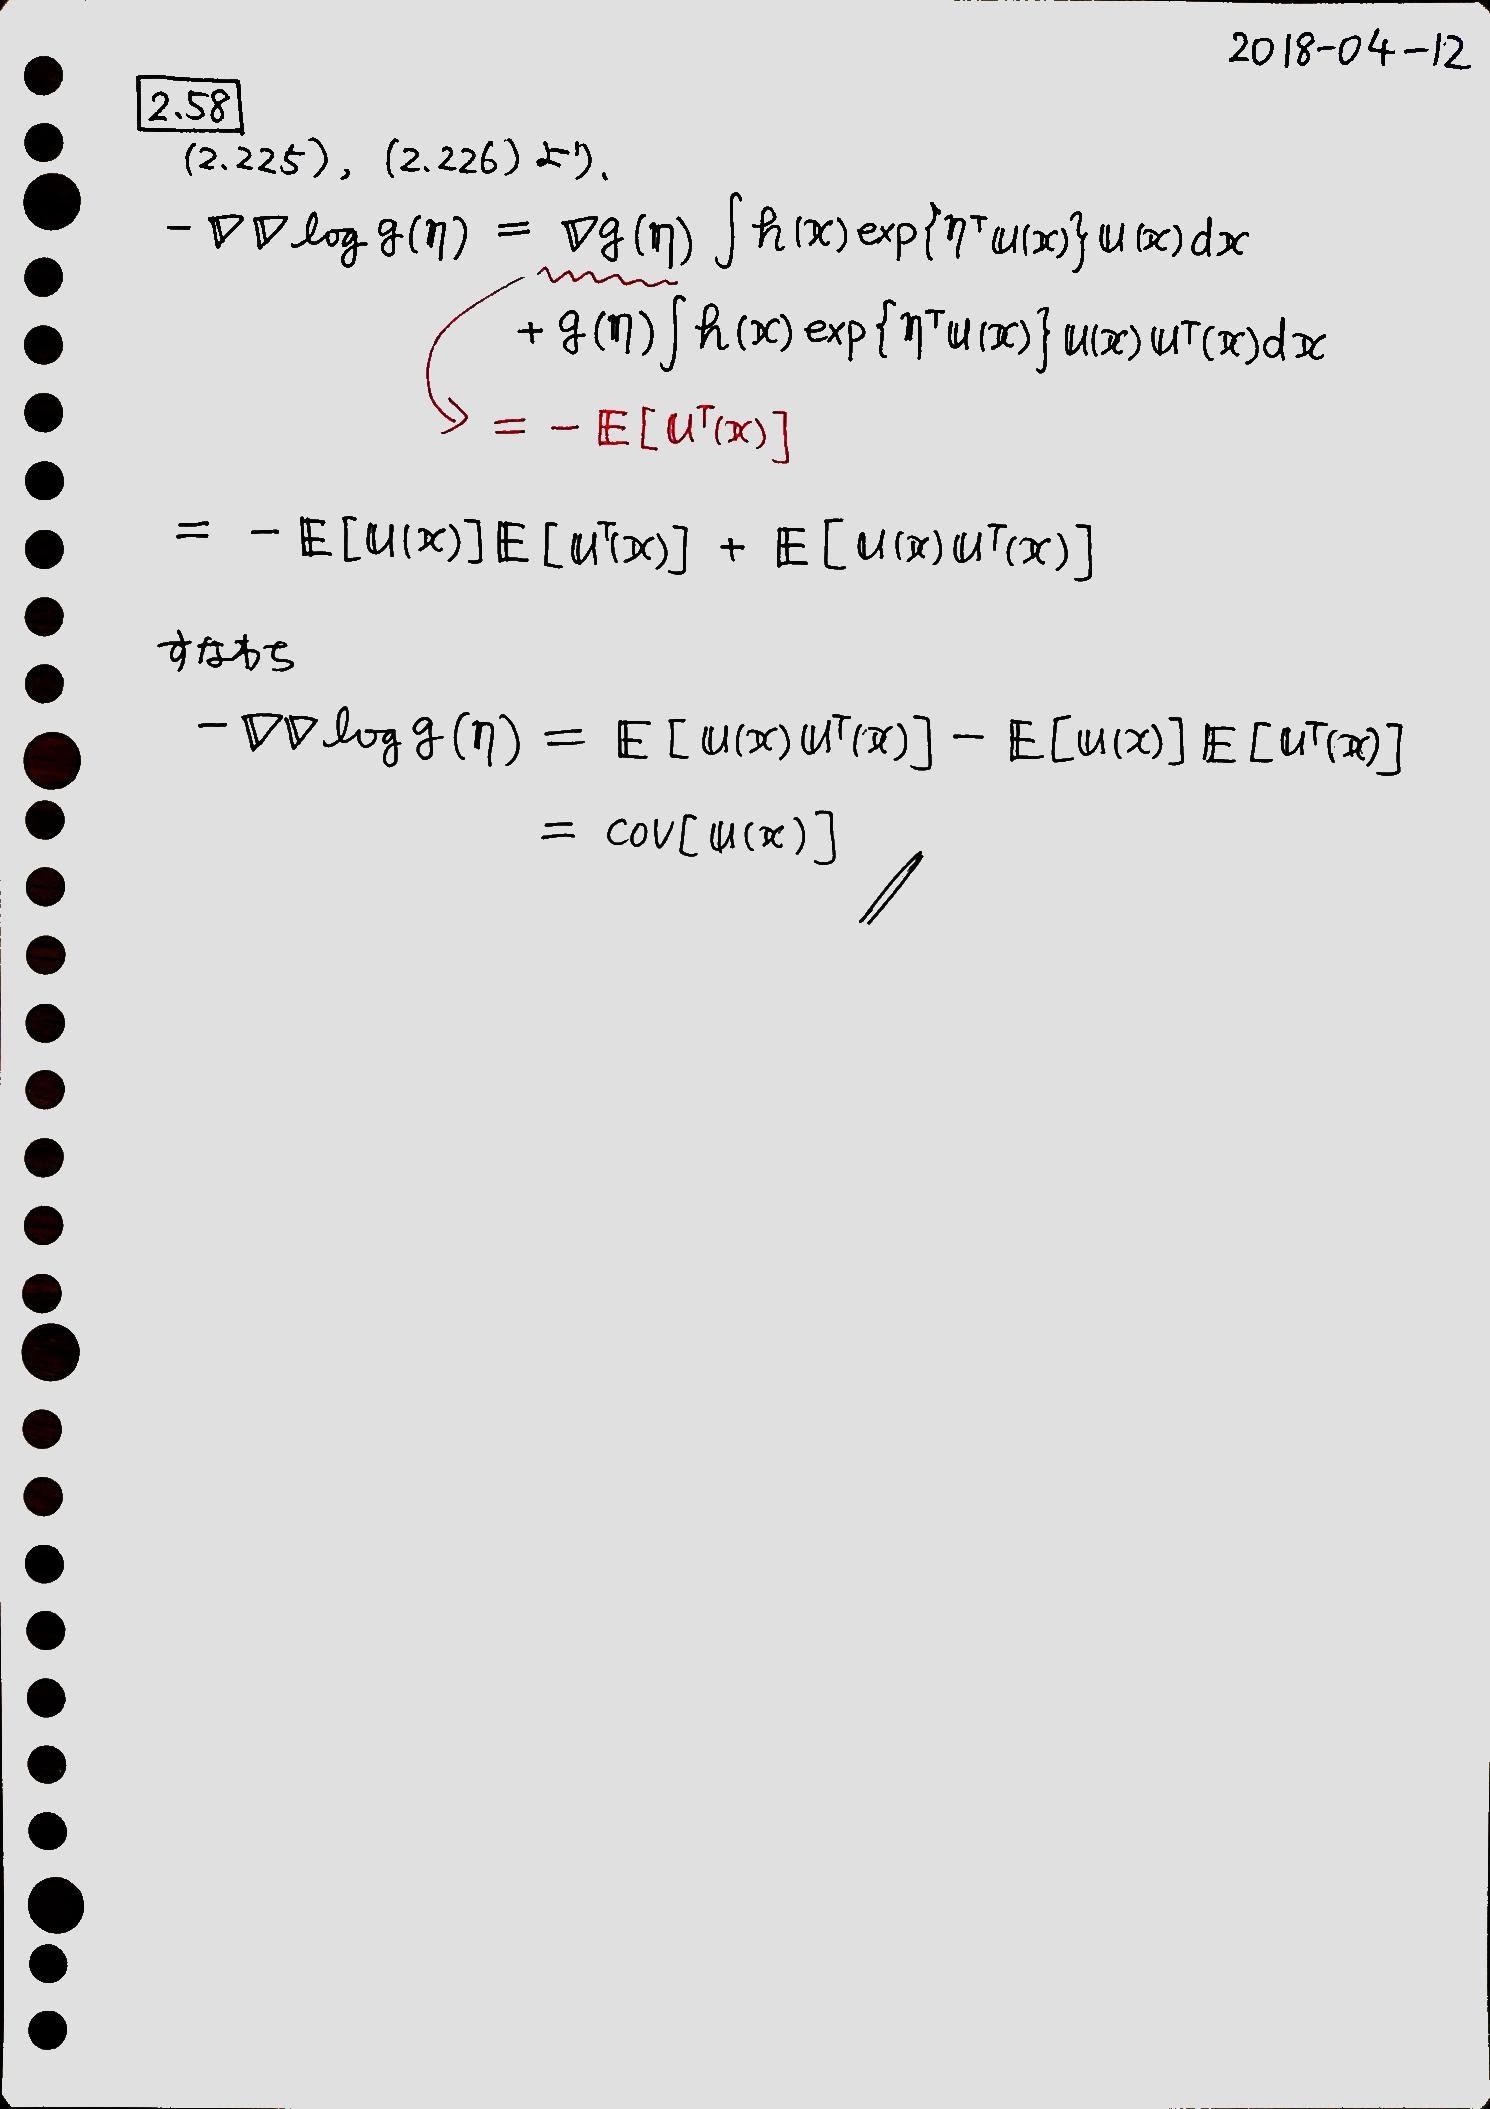 2018-04-12
2.58
(2.225), (2.226)より、
-∇∇log g(η) = ∇g(η) ∫h(x)exp{ηᵀu(x)}u(x)dx
+ g(η)∫h(x)exp{ηᵀu(x)}u(x)uᵀ(x)dx
= -𝔼[uᵀ(x)]
= -𝔼[u(x)]𝔼[uᵀ(x)] + 𝔼[u(x)uᵀ(x)]
すなわち
-∇∇log g(η) = 𝔼[u(x)uᵀ(x)] - 𝔼[u(x)]𝔼[uᵀ(x)]
= cov[u(x)]